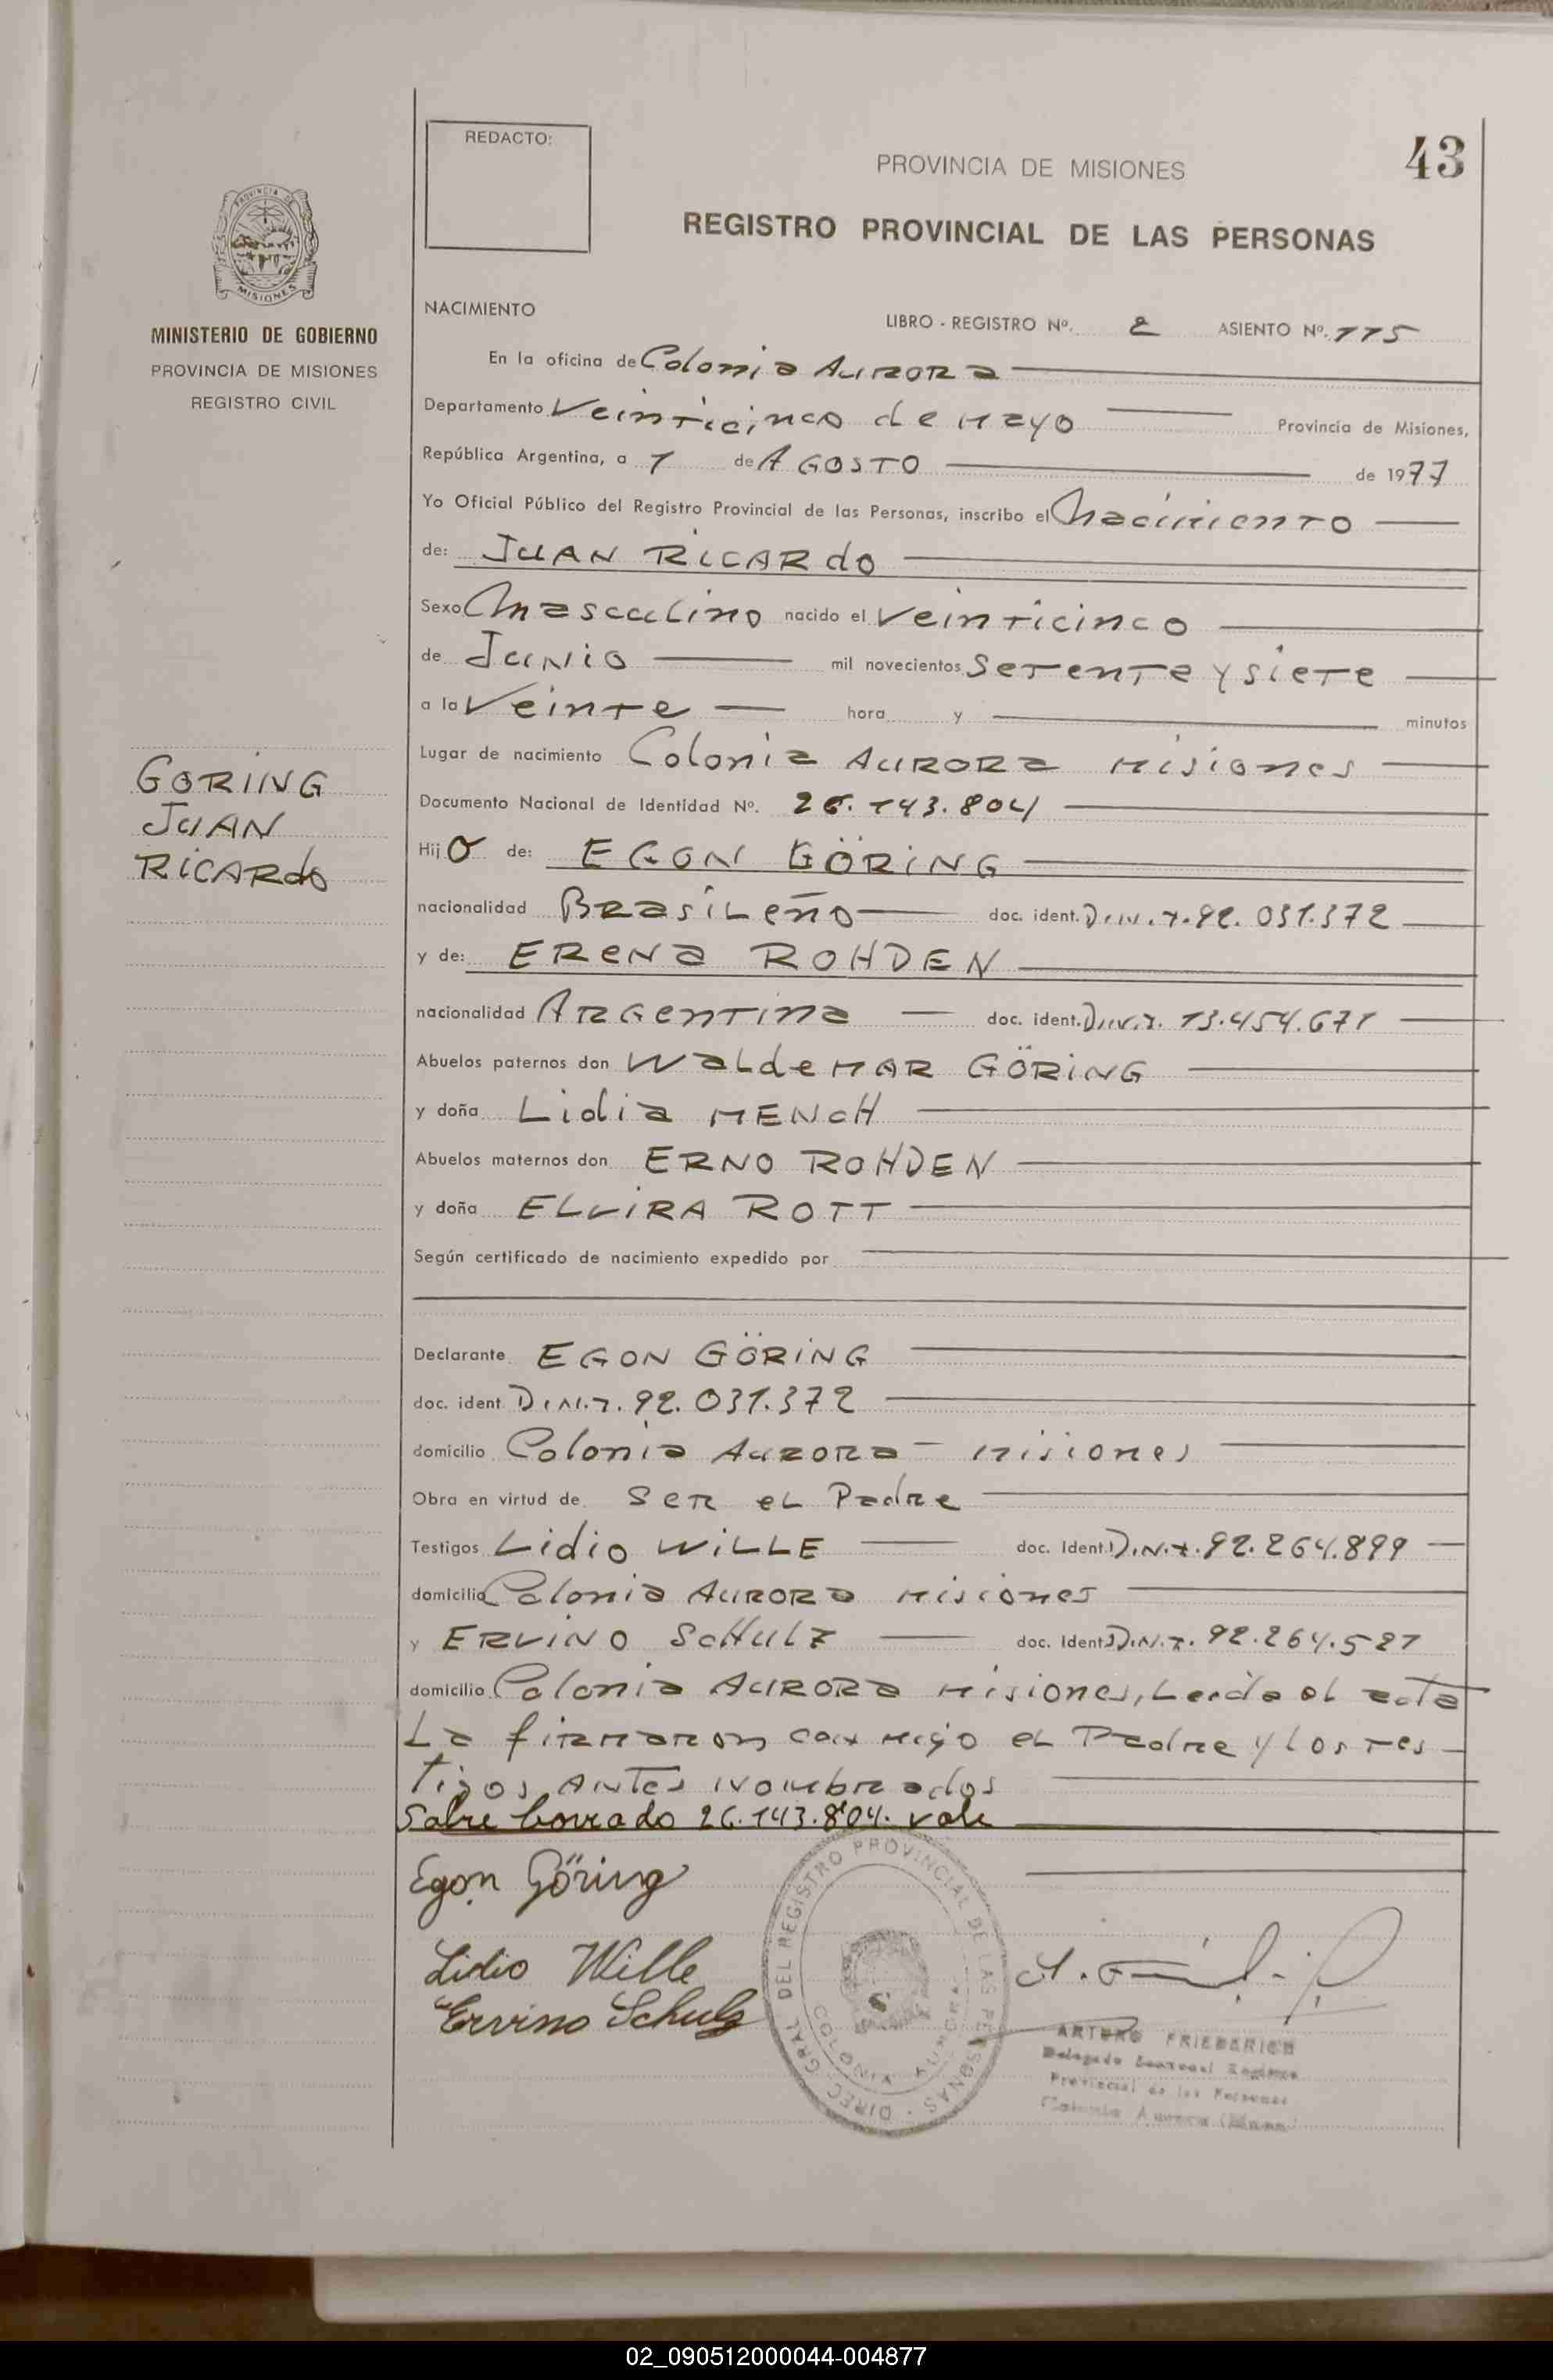 43
REDACTO:
PROVINCIA DE MISIONES
REGISTRO PROVINCIAL DE LAS PERSONAS
PROVINCIA DE
MISIONES
MINISTERIO DE GOBIERNO
PROVINCIA DE MISIONES
REGISTRO CIVIL
NACIMIENTO
LIBRO - REGISTRO Nº. 2 ASIENTO Nº. 115
En la oficina de Colonia AURORA
Departamento Veinticinco de Mayo Provincia de Misiones,
República Argentina, a 1 de AGOSTO de 1977
Yo Oficial Público del Registro Provincial de las Personas, inscribo el Nacimiento
de: JUAN RICARdo
Sexo Masculino nacido el Veinticinco
de Junio mil novecientos Setenta y siete
a la Veinte hora y minutos
Lugar de nacimiento Colonia AURORA Misiones
GORING
JUAN
RICARdo
Documento Nacional de Identidad Nº. 26.143.804
Hijo de: EGON GÖRING
nacionalidad BRasiLeño doc. ident. D.N.I. 92.031.372
y de: EReNa ROHDEN
nacionalidad ARGentina doc. ident. D.N.I. 13.454.671
Abuelos paternos don WaLdeMAR GÖRING
y doña Lidia MENcH
Abuelos maternos don ERNO ROHDEN
y doña ELVIRA ROTT
Según certificado de nacimiento expedido por
Declarante EGON GÖRING
doc. ident D.N.I. 92.031.372
domicilio Colonia AURORA - Misiones
Obra en virtud de SeR eL Padre
Testigos Lidio WiLLE doc. Ident. D.N.I. 92.264.899
domicilio Colonia AURORA Misiones
y ERVINO ScHulz doc. Ident. D.N.I. 92.264.527
domicilio Colonia AURORA Misiones, Leida el acta
La firmaron con migo eL Padre y los tes
tigos ANtes Nombrados
Sobre borrado 26.143.804. vale
Egon Göring
Lidio Wille
Ervino Schulz
DIREC. GRAL. DEL REGISTRO PROVINCIAL DE LAS PERSONAS
COLONIA AURORA
ARTURO FRIEDERICH
Delegado Seccional Registro
Provincial de las Personas
Colonia Aurora
02_090512000044-004877